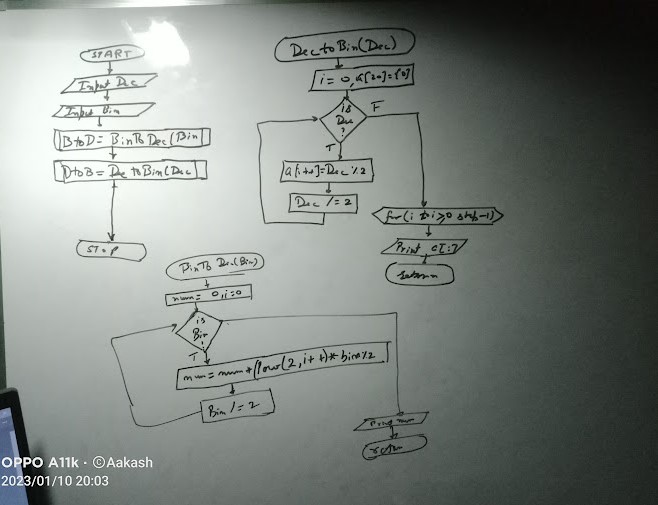 START
Input Dec
Input Bin
BtoD = BinToDec(Bin)
DtoB = DectoBin(Dec)
STOP
DectoBin(Dec)
i = 0, a[20]={0}
is
Dec
?
F
T
a[i++]=Dec%2
Dec /= 2
for(i to i>=0 step-1)
Print a[i]
return
BinToDec(Bin)
num = 0, i=0
is
Bin
?
T
num = num+(Pow(2,i++)*bin%2
Bin /= 2
Print num
return
OPPO A11k · ©Aakash
2023/01/10 20:03